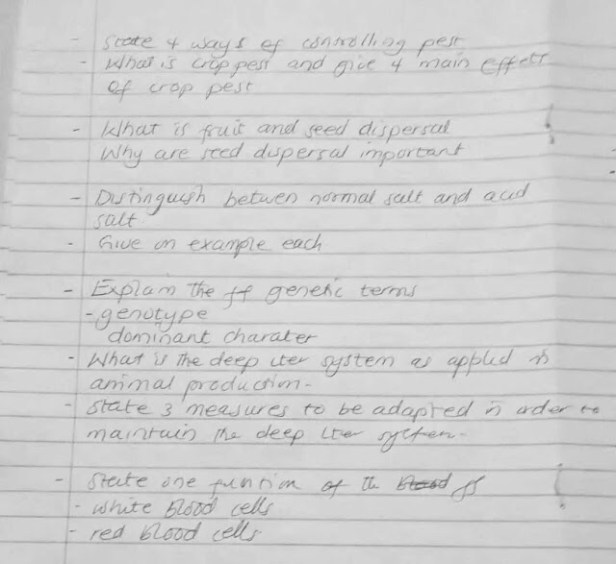 - State 4 ways of controlling pest
- What is crop pest and give 4 main effect
of crop pest
- What is fruit and seed dispersal
Why are seed dispersal important
- Distinguish betwen normal salt and acid
salt
- Give on example each
- Explain the ff genetic terms
- genotype
dominant charater
- What is the deep liter system as applied is
animal production.
- State 3 measures to be adapted in order to
maintain the deep liter system.
- State one funtion of the ff
- white blood cells
- red blood cells